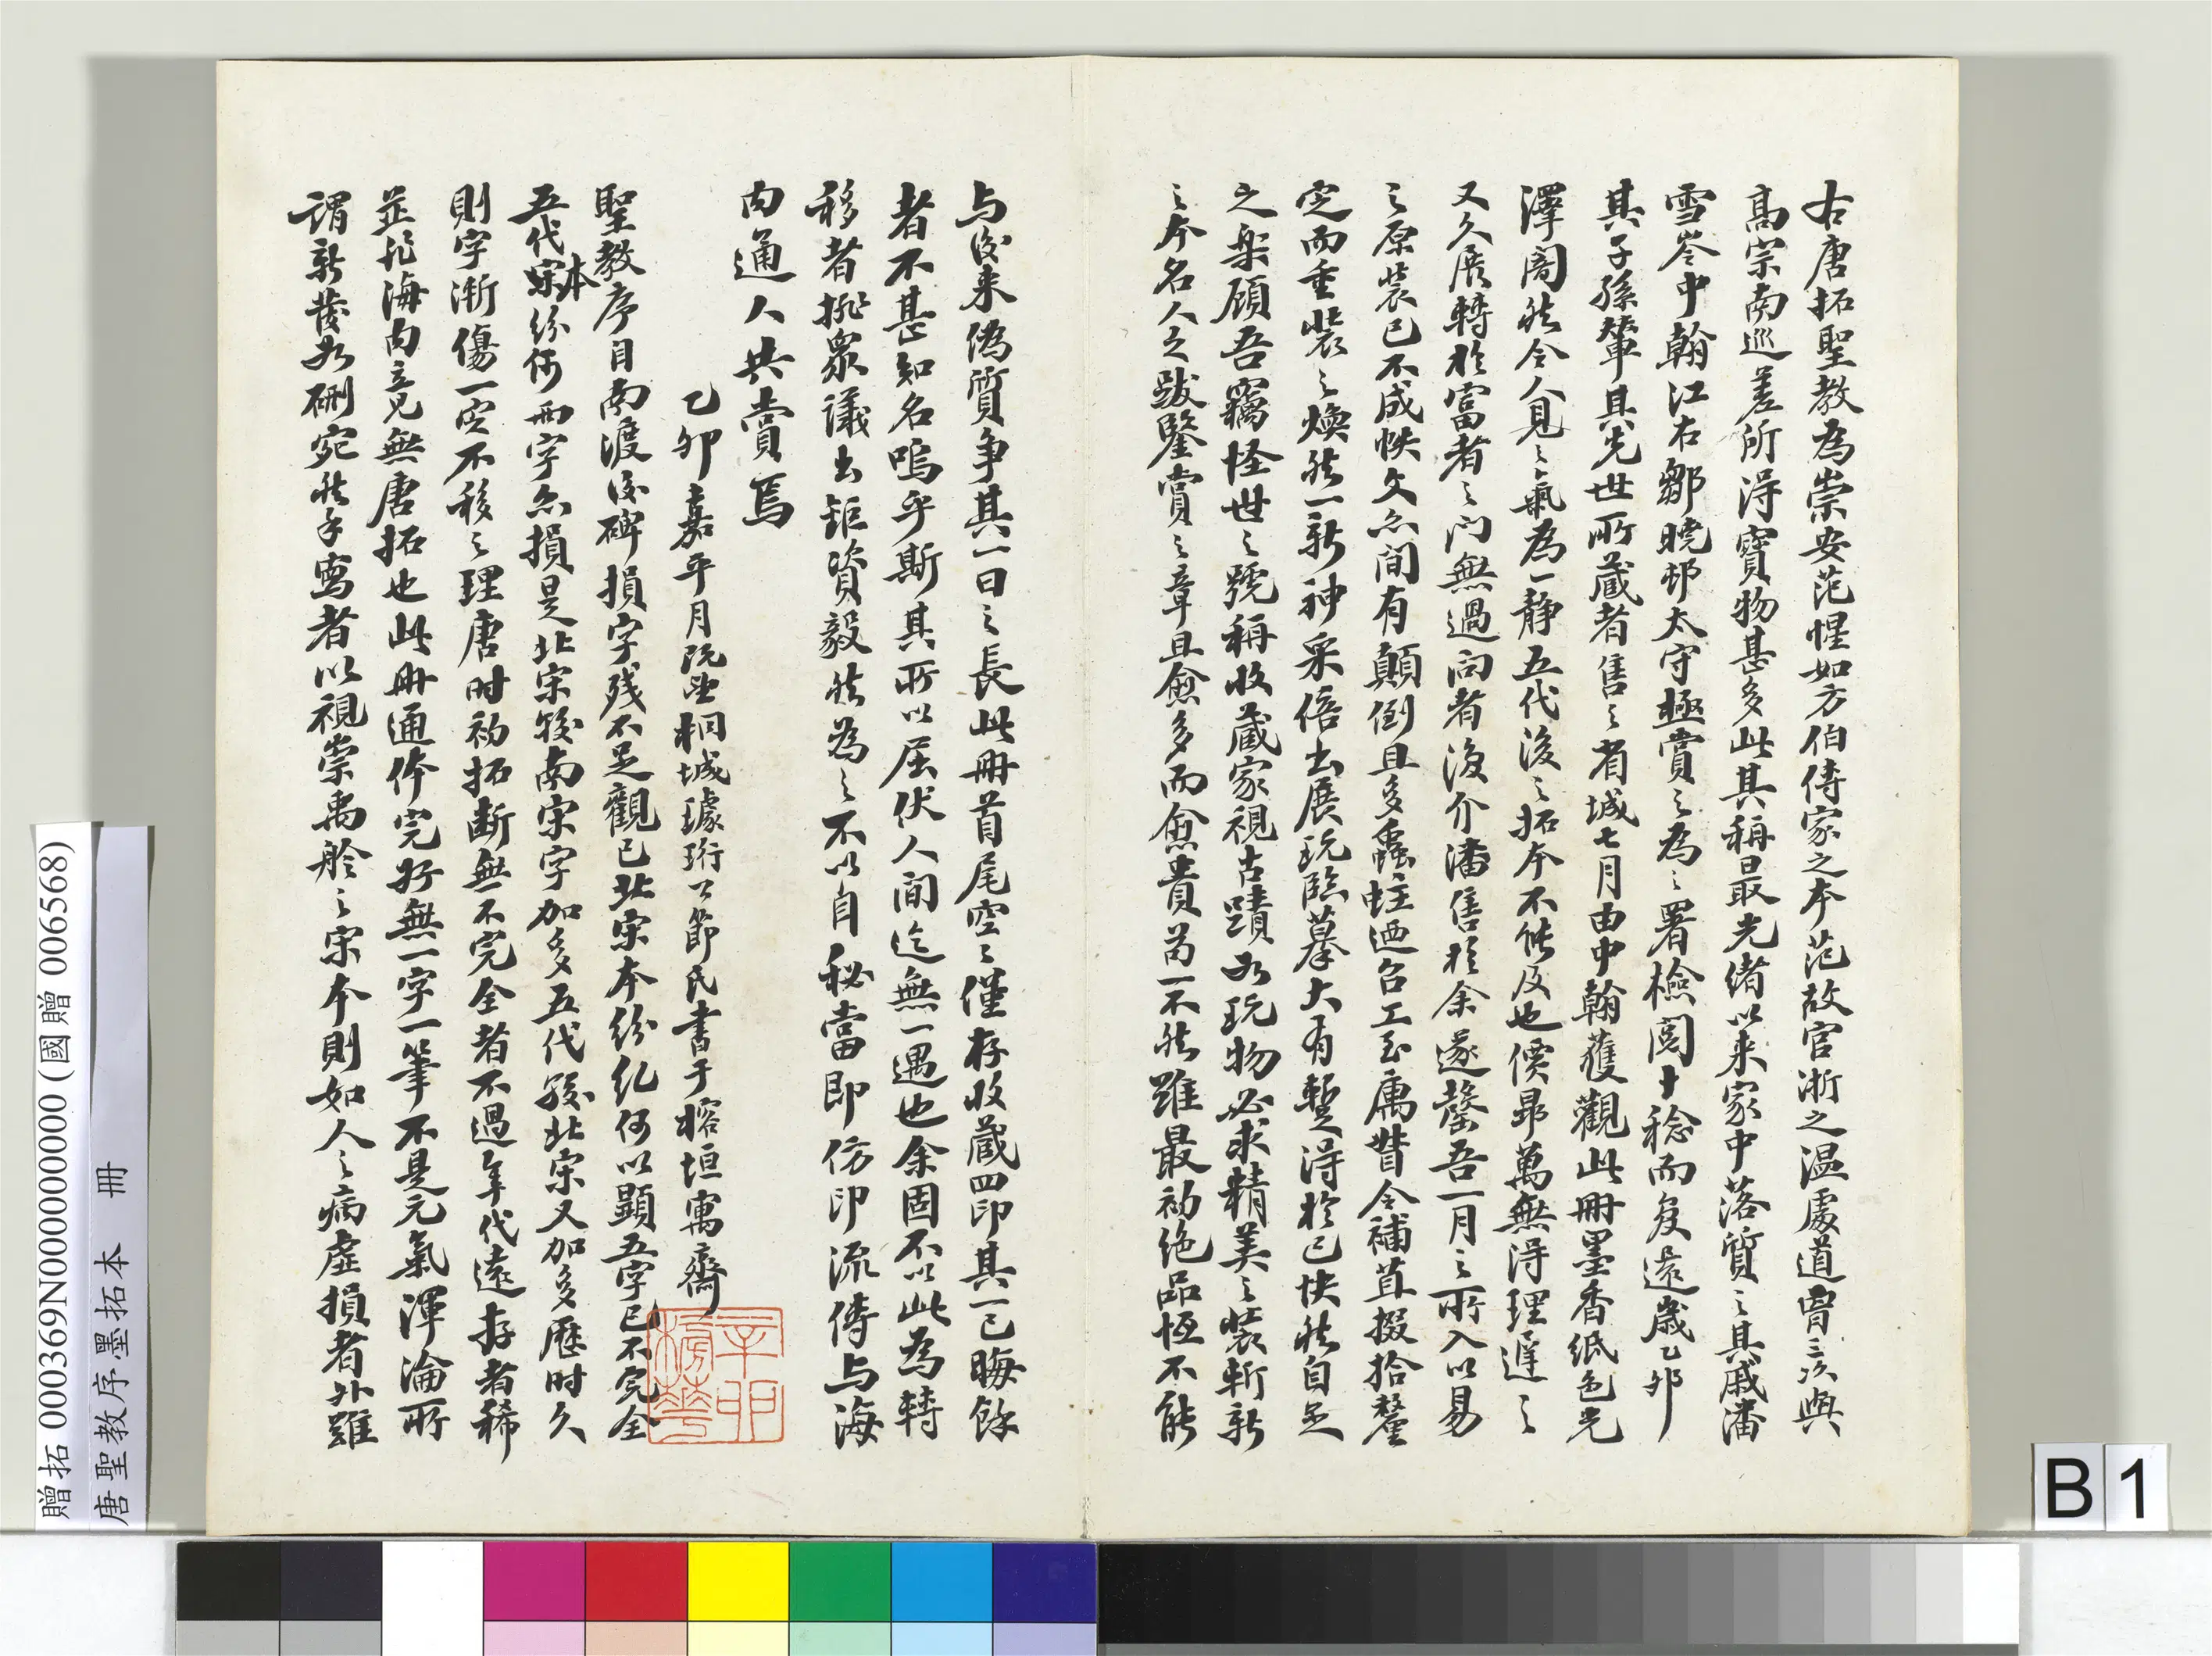 右唐拓聖教為崇安范惺如方伯傳家之本范故官浙之溫處道曾三次與
高宗南巡差所得寶物甚多此其稱最光緒以來家中落質之其戚潘
雪岑中翰江右鄒曉邨太守極賞之為之署檢閱十稔而復還歲乙卯
其子孫輦其先世所藏者售之省城七月由中翰獲觀此冊墨香紙色光
澤闇然令人見之氣為一靜五代後之拓本不能及也價昂萬無得理遲之
又久展轉於富者之門無過問者復介潘售於余遂罄吾一月之所入以易
之原裝已不成帙文亦間有顛倒且多蠹蛀迺召工至寓督令補苴掇拾釐
定而重裝之煥然一新神采倍出展玩臨摹大有暫得於己快然自足
之樂顧吾竊怪世之號稱收藏家視古蹟如玩物必求精美之裝斬新
之本名人之跋鑒賞之章且愈多而愈貴苟一不然雖最初絕品恆不能
与後来偽質爭其一日之長此冊首尾空之僅存收藏四印其一已晦餘
者不甚知名嗚乎斯其所以屈伏人間迄無一遇也余固不以此為轉
移者排眾議出鉅資毅然為之不以自秘當即仿印流傳与海
內通人共賞焉
乙卯嘉平月既望桐城璩珩公節氏書于榕垣寓齋
聖教序自南渡後碑損字殘不足觀已北宋本紛紜何以顯五字已不完全
五代宋本紛何兩字亦損是北宋較南宋字加多五代較北宋又加多歷時久
則字漸傷一定不移之理唐时初拓斷無不完全者不過年代遠存者稀
並非海內竟無唐拓也此冊通体完好無一字一筆不是元氣渾淪所
謂新發如硎宛然手寫者以視崇禹舲之宋本則如人之病虛損者外雖
贈拓 000369N000000000 (國贈 006568)
唐聖教序墨拓本 冊
B 1